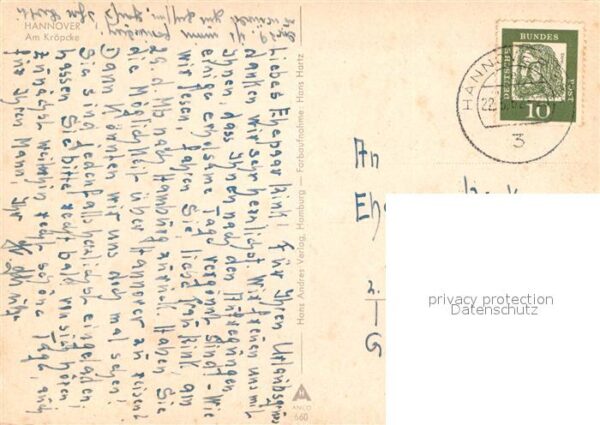 HANNOVER
Am Kröpcke
Liebes Ehepaar Kink! Für Ihren Urlaubsgruß
danken wir sehr herzlichst. Wir freuen uns mit
Ihnen, dass Ihnen nach den Aufregungen
einige erholsame Tage vergönnt sind. - Wie
wir lesen, fahren Sie, liebe Frau Kink, am
29. d. Mts nach Hamburg zurück. Haben Sie
die Möglichkeit über Hannover zu reisen?
Dann könnten wir uns doch mal sehen!
Sie sind jedenfalls herzlichst eingeladen
Lassen Sie bitte recht bald von sich hören!
Zunächst weiterhin recht schöne Tage, auch
für Ihren Mann, Ihr
Hans Andres Verlag, Hamburg — Farbaufnahme: Hans Hartz
ANCO
660
HANNOVER
22.
3
DEUTSCHE
BUNDES
POST
10
An
Privacy protection
Datenschutz